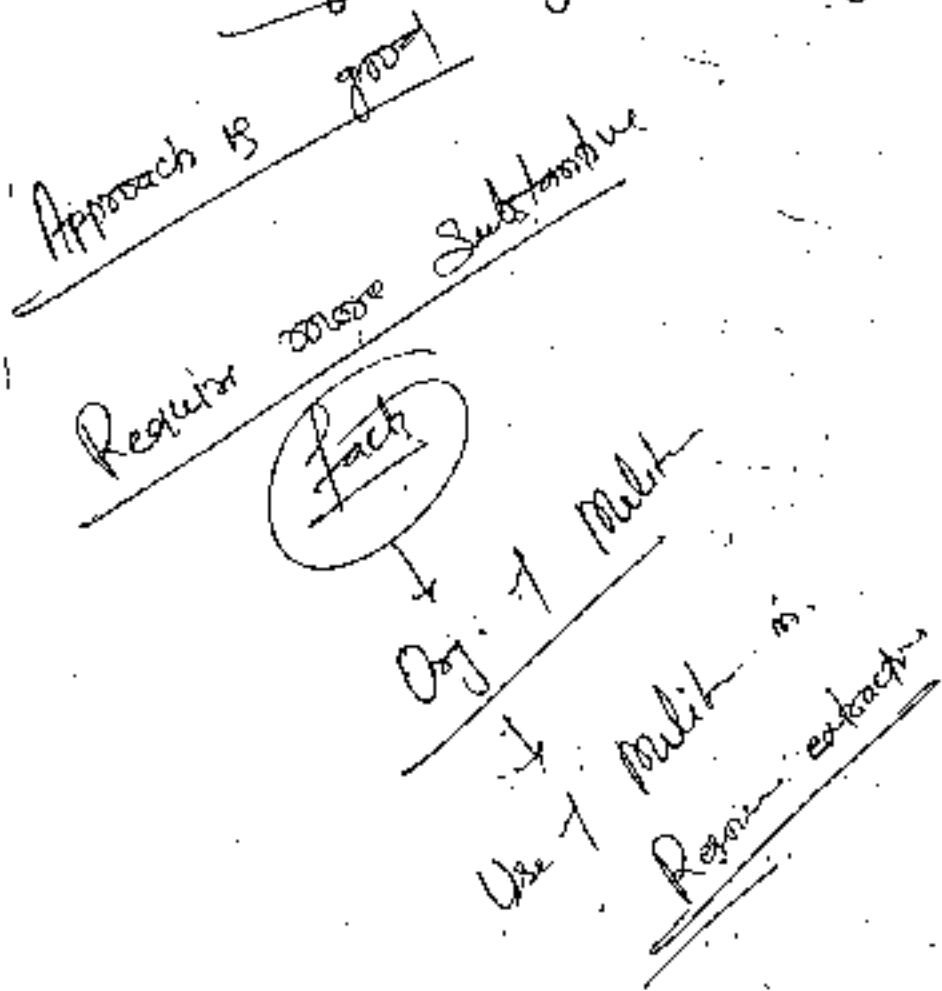 Approach is good
Require more Substantive
fact
Org. of Milit
Use of Milit in
Region extraction